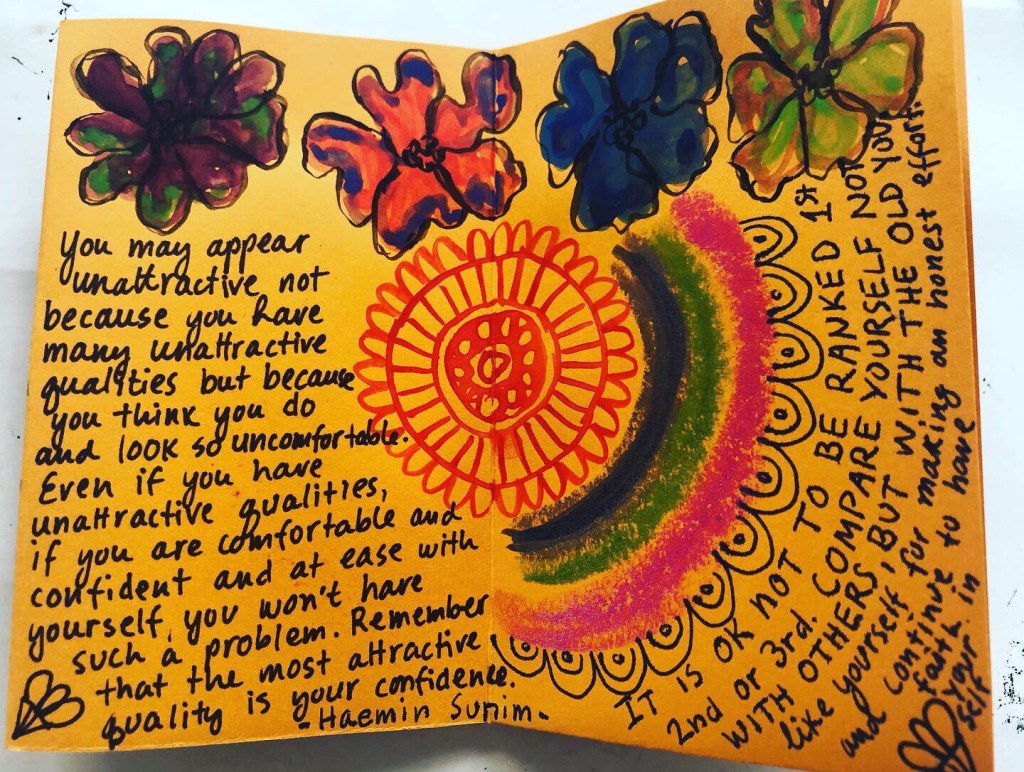 You may appear
unattractive not
because you have
many unattractive
qualities but because
you think you do
and look so uncomfortable.
Even if you have
unattractive qualities,
if you are comfortable and
confident and at ease with
yourself, you won't have
such a problem. Remember
that the most attractive
quality is your confidence.
- Haemin Sunim -
IT IS OK NOT TO BE RANKED 1st
2nd or 3rd. COMPARE YOURSELF NOT
WITH OTHERS, BUT WITH THE OLD YOU.
like yourself, for making an honest effort.
and continue to have
faith in
your
self